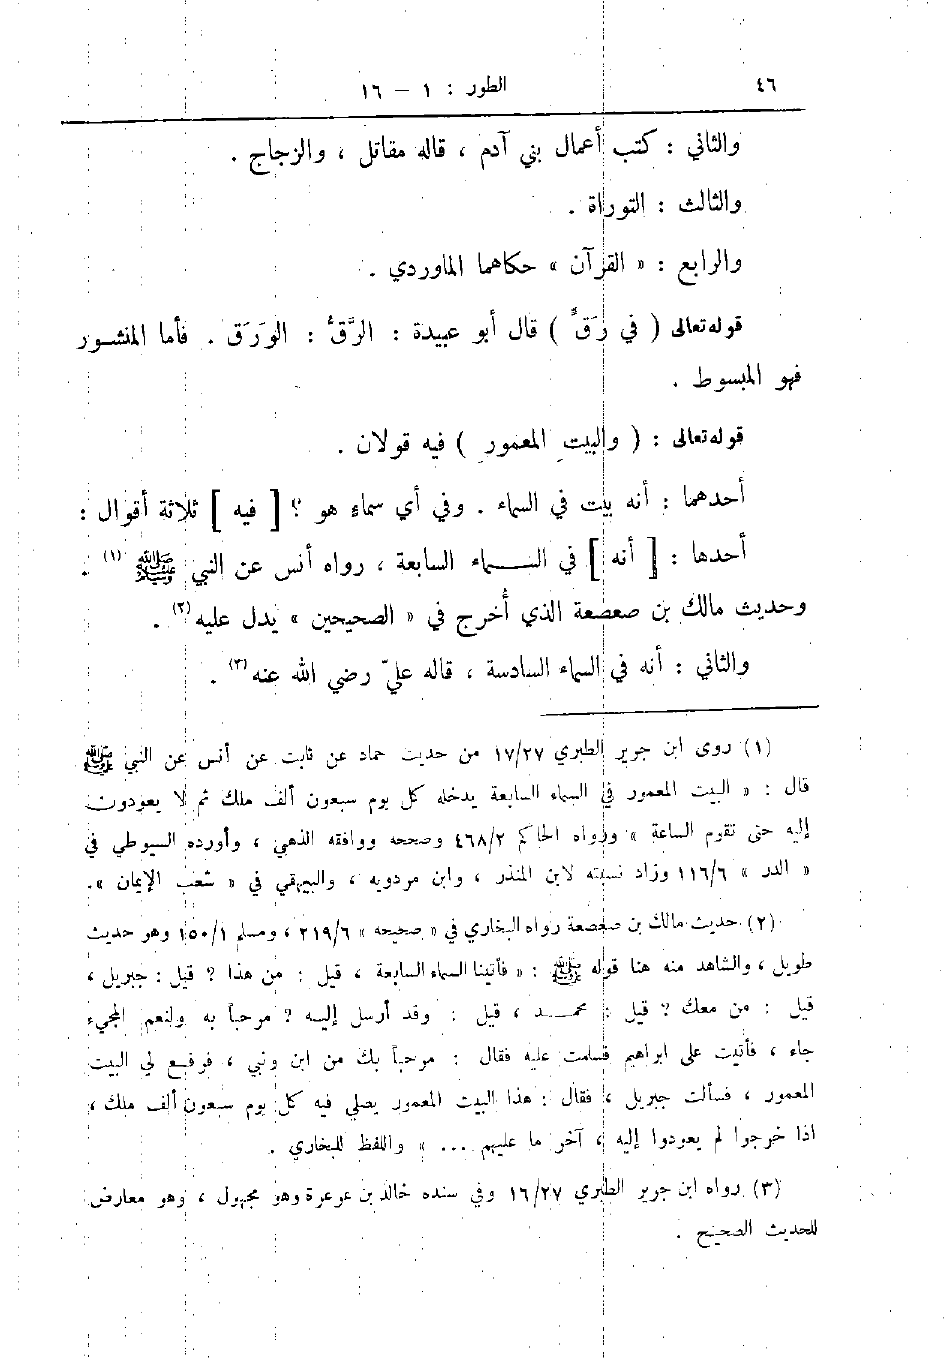 ٤٦
الطور : ١ – ١٦
والثاني : كتب أعمال بني آدم ، قاله مقاتل ، والزجاج .
والثالث : التوراة .
والرابع : « القرآن » حكاهما الماوردي .
قوله تعالى ( في رَقٍّ ) قال أبو عبيدة : الرَّقُّ : الوَرَق . فأما المنشــور
فهو المبسوط .
قوله تعالى : ( والبيتِ المعمورِ ) فيه قولان .
أحدهما : أنه بيت في السماء . وفي أي سماءٍ هو ؟ [ فيه ] ثلاثة أقوال :
أحدها : [ أنه ] في الســـماء السابعة ، رواه أنس عن النبي ﷺ (١) .
وحديث مالك بن صعصعة الذي أُخرج في « الصحيحين » يدل عليه (٢) .
والثاني : أنه في السماء السادسة ، قاله عليّ رضي الله عنه (٣) .
(١) روى ابن جرير الطبري ١٧/٢٧ من حديث حماد عن ثابت عن أنس عن النبي ﷺ
قال : « البيت المعمور في السماء السابعة يدخله كل يوم سبعون ألف ملك ثم لا يعودون
إليه حتى تقوم الساعة » ورواه الحاكم ٤٦٨/٢ وصححه ووافقه الذهبي ، وأورده السيوطي في
« الدر » ١١٦/٦ وزاد نسبته لابن المنذر ، وابن مردويه ، والبيهقي في « شعب الإيمان ».
(٢) حديث مالك بن صعصعة رواه البخاري في « صحيحه » ٢١٩/٦ ، ومسلم ١٥٠/١ وهو حديث
طويل ، والشاهد منه هنا قوله ﷺ : « فأتينا السماء السابعة ، قيل : من هذا ؟ قيل : جبريل ،
قيل : من معك ؟ قيل : محمــد ، قيل : وقد أرسل إليه ؟ مرحباً به ولنعم المجيء
جاء ، فأتيت على ابراهيم فسلمت عليه فقال : مرحباً بك من ابن ونبي ، فرفع لي البيت
المعمور ، فسألت جبريل ، فقال : هذا البيت المعمور يصلي فيه كل يوم سبعون ألف ملك ،
اذا خرجوا لم يعودوا إليه ، آخر ما عليهم ... » واللفظ للبخاري .
(٣) رواه ابن جرير الطبري ١٦/٢٧ وفي سنده خالد بن عرعرة وهو مجهول ، وهو معارض
للحديث الصحيح .